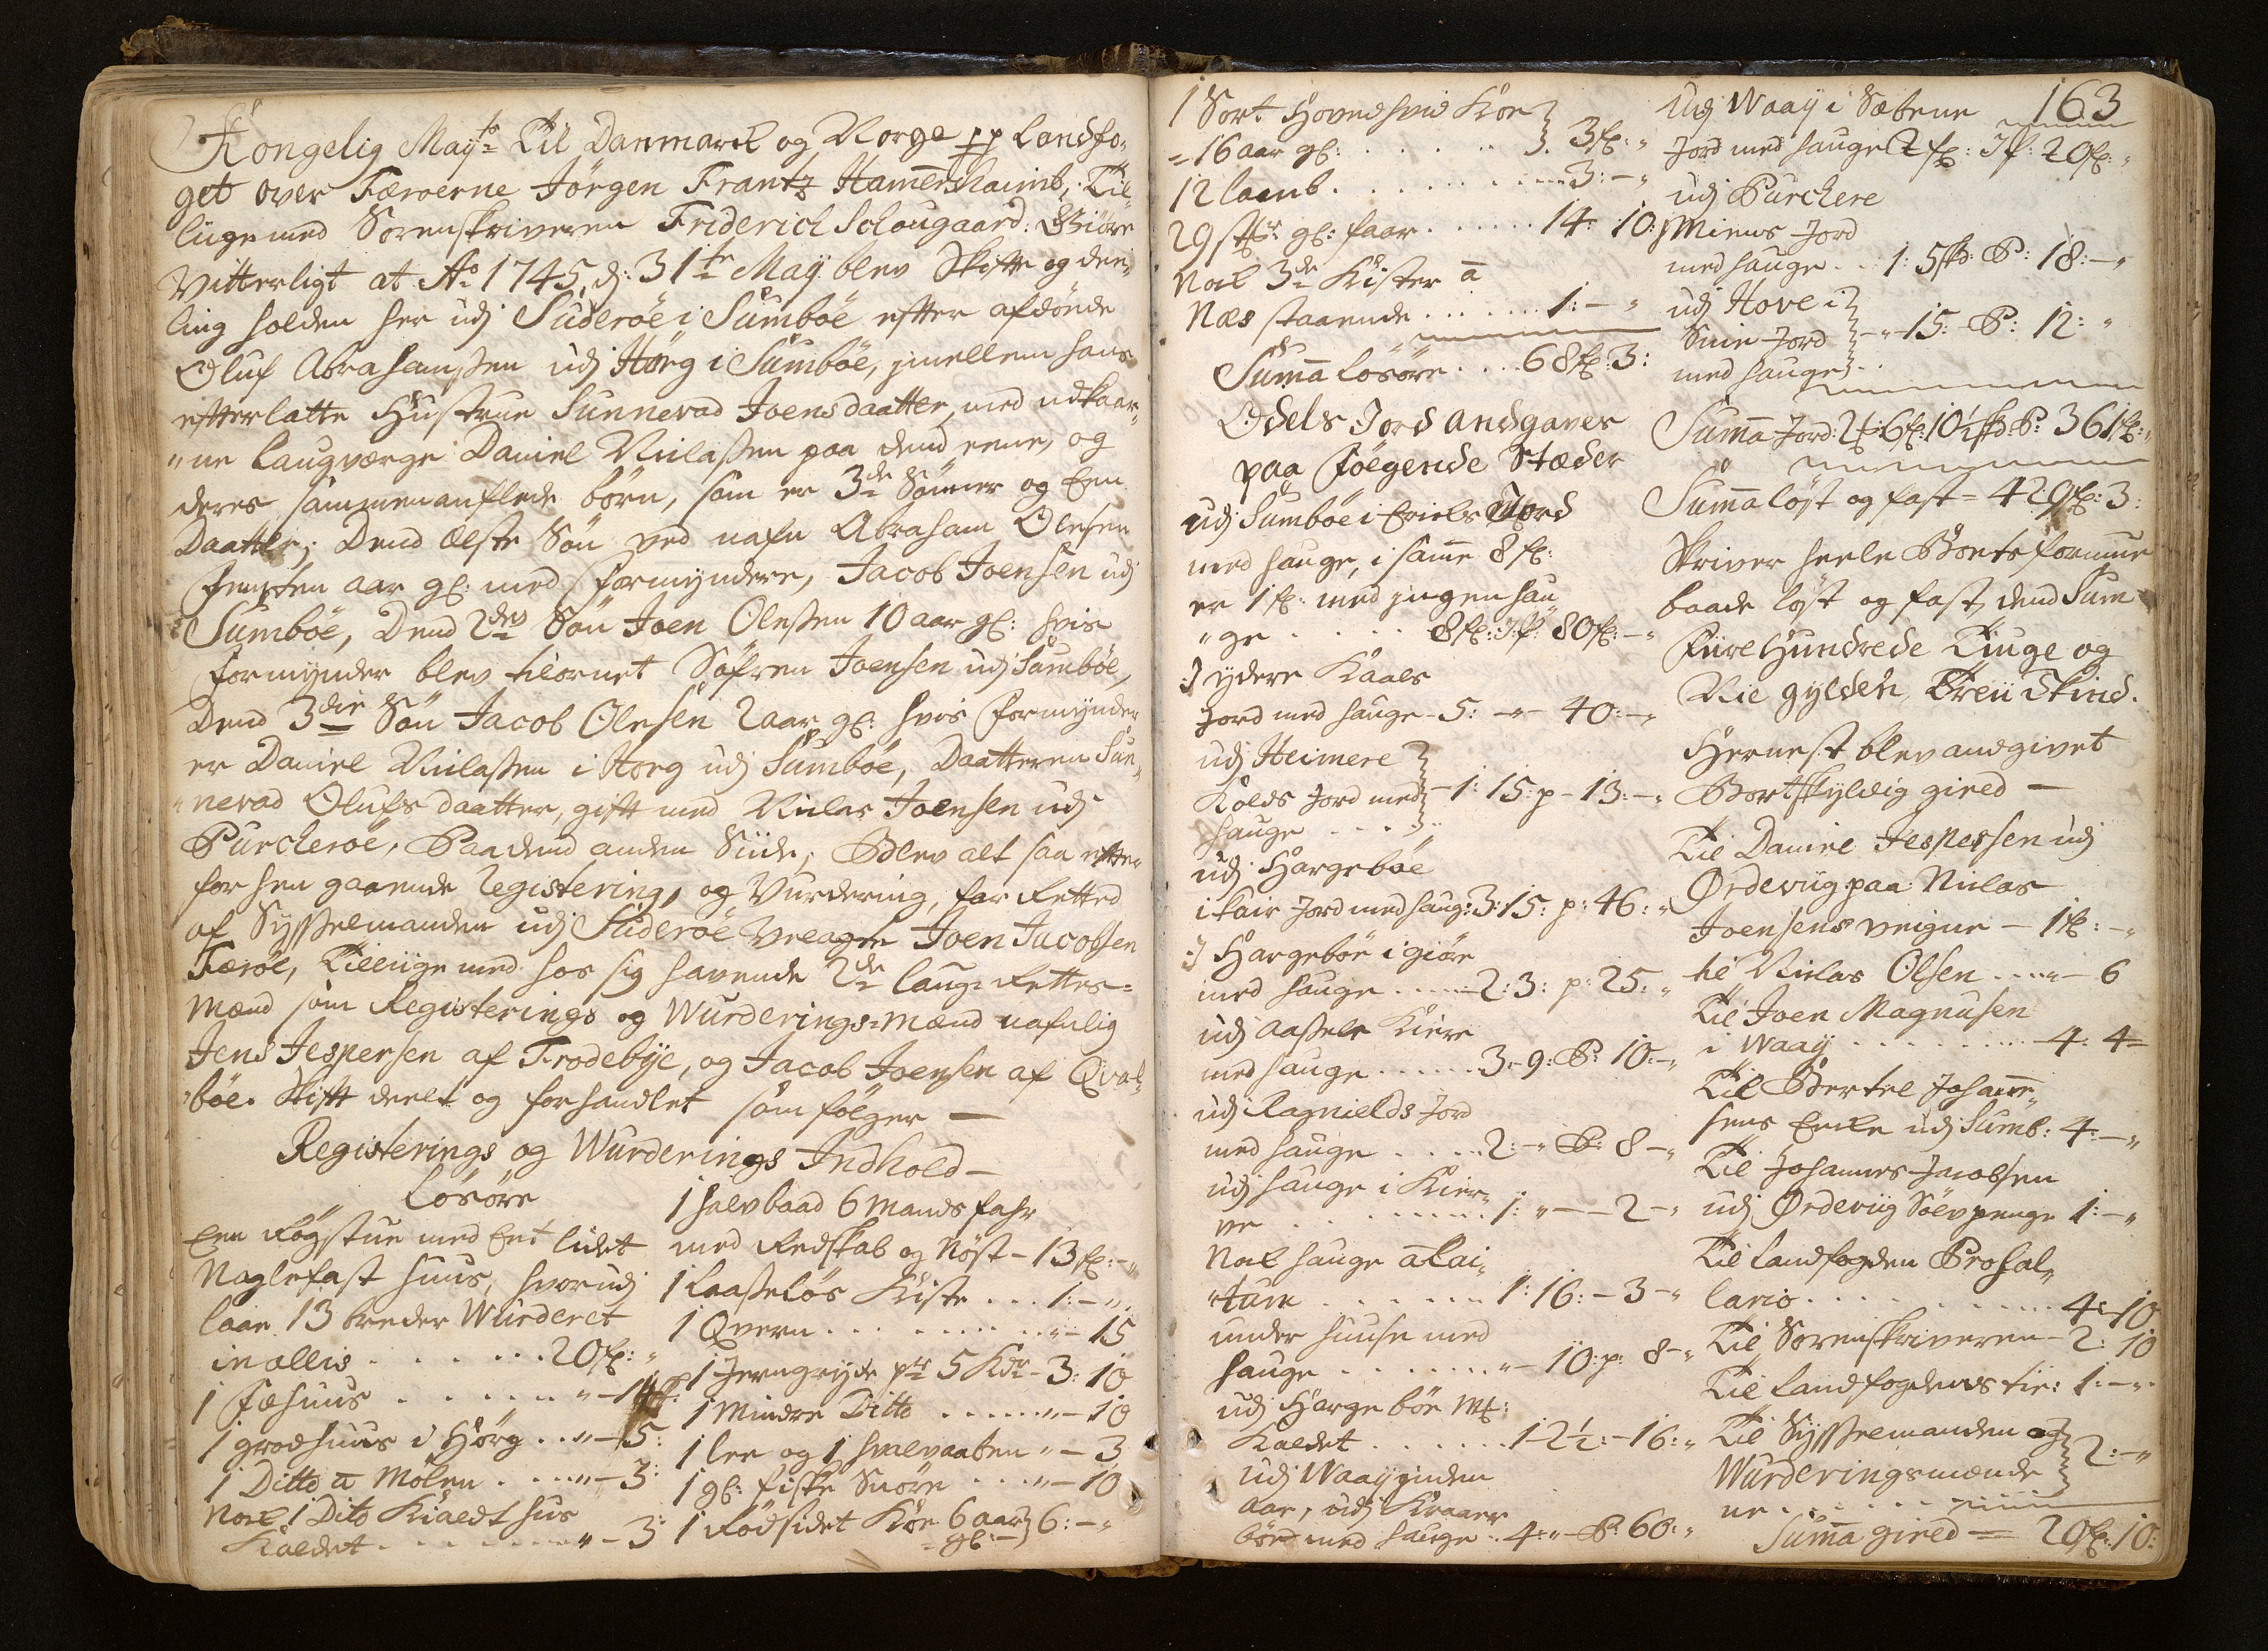 Kongelig Mayts Til Danmarck og Norge pp Landfo,
get over Færøerne Jörgen Frantz Hamershaimb, Til
liige med Sorenskriveren Friderich Schougaard: Giöre
Vitterligt at Ao 1745, d: 31te May blev Skifte og dee,
ling holden her udj Suderöe i Sumböe efter afdöde
Oluf Abrahamsen udj Hörg i Sumböe, jmellem hans
efterlatte Hustrue Sunnevad Joensdaatter, med udkaar,
"ne Laugværge Daniel Niclasen paa dend eene, og
deres sammenauflede börn, som er 3de Sönner og Een
Daatter; Dend Ælste Sön ved nafn Abraham Olesen
femten aar gl: med formyndere, Jacob Joensen udj
Sumböe, Dend 2den Sön Joen Olessen 10 aar gl: hvis
formynder blev tilornet Söfren Joensen udj Sumböe,
Dend 3die Sön Jacob Olesen 2 aar gl: hvis formynder
er Daniel Niclassen i Horg udj Sumböe, Daatteren Sun,
"nevad Olufsdaatter, gift med Niclas Joensen udj
Purcheröe, Paa dend anden Siide, Blev alt saa efter
forhen gaaende Registering, og Vurdering, forretted
af Sysselmanden udj Suderöe Velagte Joen Jacobsen
Færöe, Tilliige med hos sig havende 2de Laug-Rettes-
Mænd som Registerings og Wurderings-mænd nafnlig
Jens Jespersen af Frodebye, og Jacob Joensen af Qval,
"böe. Skift deelt og forhandlet som fölger —
Registerings og Wurderings Indhold —
Lösöre
Een Rögstue med Eet lidet
Naglefast huus, hvorudj
laae 13 breder Wurderet
in allis . . . . . . 20f: "
1 Fæhuus . . . . . . "-
1 groehuus i Hörg . . "-15:
1 Ditto a Molen . . . . "-3:
Nock 1 Dito Kiaedt hus
Kaldet . . . . . . . "-3:
1 halvbaad 6 Mands fahr
med Redskab og Nöst - 13f: - "
1 Laasselös Kiste . . . 1: - "
1 Qvern . . . . . . . . "- 15
1 Jerngryde pr 5 Kdr - 3: 10
1 Mindre Ditto . . . . . "- 10
1 lee og 1 hvalvaaben " - 3
1 gl: fiske Snöre . . . "- 10
1 Rödsidet Kõe 6 aar } 6: - "
gl: -
1 Sort Hovedhvid Köe }
= 16 aar gl: . . . . . . }. 3f: "
12 lamb . . . . . . . . . 3: - "
29 st: gl: faar . . . . . . 14: 10:
Nock 3de Kister a
Næs staaende . . . . . . 1: - "
Suma Lösöre . . . . 68f: 3:
Odels Jord andgaves
paa Fölgende Stæder
udj Sumböe i Eriels Jord
med hauge, i samme 8f:
er 1f: med jngen hau
"ge . . . . . 80f: - "
:) ydere Kaals
Jord med hauge - 5: - " - 40: - "
udj Heimere }
Kolds Jord med } - 1: 15: p - 13: - "
hauge . . . }
udj Hargeböe
i Lair Jord med haug: 3: 15: p: 46: "
:) Hargeböe i giöre
med hauge . . . . . 2: 3: p: 25: "
udj aassele Kiere
med hauge . . . . . 3. 9: P: 10: - "
udj Ragnields Jord
med hauge . . . . 2: - " P: 8 - "
udj hauge i Kier,
ve . . . . . . . . 1: " - - 2 - "
Nock hauge a Lai,
"tum . . . . . . . 1: 16: - 3 - "
under huuse med
hauge . . . . . . . " - 10: p: 8 - "
udj Hargeböe
Kaldet . . . . . . 1- 2½: - 16: "
udj Waay jnden
aar, udj Kraaer
böe med hauge . . 4: " P: 60: "
163
Udj Waay i Sætene
Jord med hauge 20f: "
udj Purchere
:) Miews Jord
med hauge . . 1: 5 P: 18: - "
udj Hove i }
Suie Jord } - " - 15: P: 12: "
med hauge } . .
Suma Jord: P: 361f: "
Suma löst og fast = 429f: 3:
Skriver heele Boets formue
baade löst og fast, dend Sum
Fiire Hundrede Tiuge og
Nie gylden Treii Skind.
Hernest blev andgivet
Bortskyldig gieed —
Til Daniel Jespersen udj
Ørdeviig paa Niclas
Joensens veigne - 1f: - "
til Niclas Olsen . . . . " - 6
Til Joen Magnusen
i Waay . . . . . . . . . 4: 4 =
Til Bertel Johanne,
sens Encke udj Sumb: 4: - "
Til Johannes Jacobsen
udj Ørdeviig Sölvpenge 1: - "
Til Landfogden Pro Sal,
lario . . . . . . . . . . 4: 10
Til Sorenskriveren - 2: 10
Til Landfogdens tie: 1: - "
Til Sysselmanden og }
Wurderingsmænde } 2: - "
ne . . . . . . .
Suma gieed = 20f: 10: